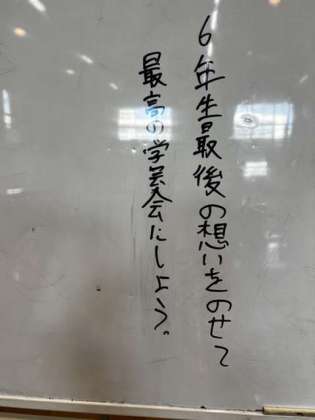 6年生最後の想いをのせて
最高の学芸会にしよう。